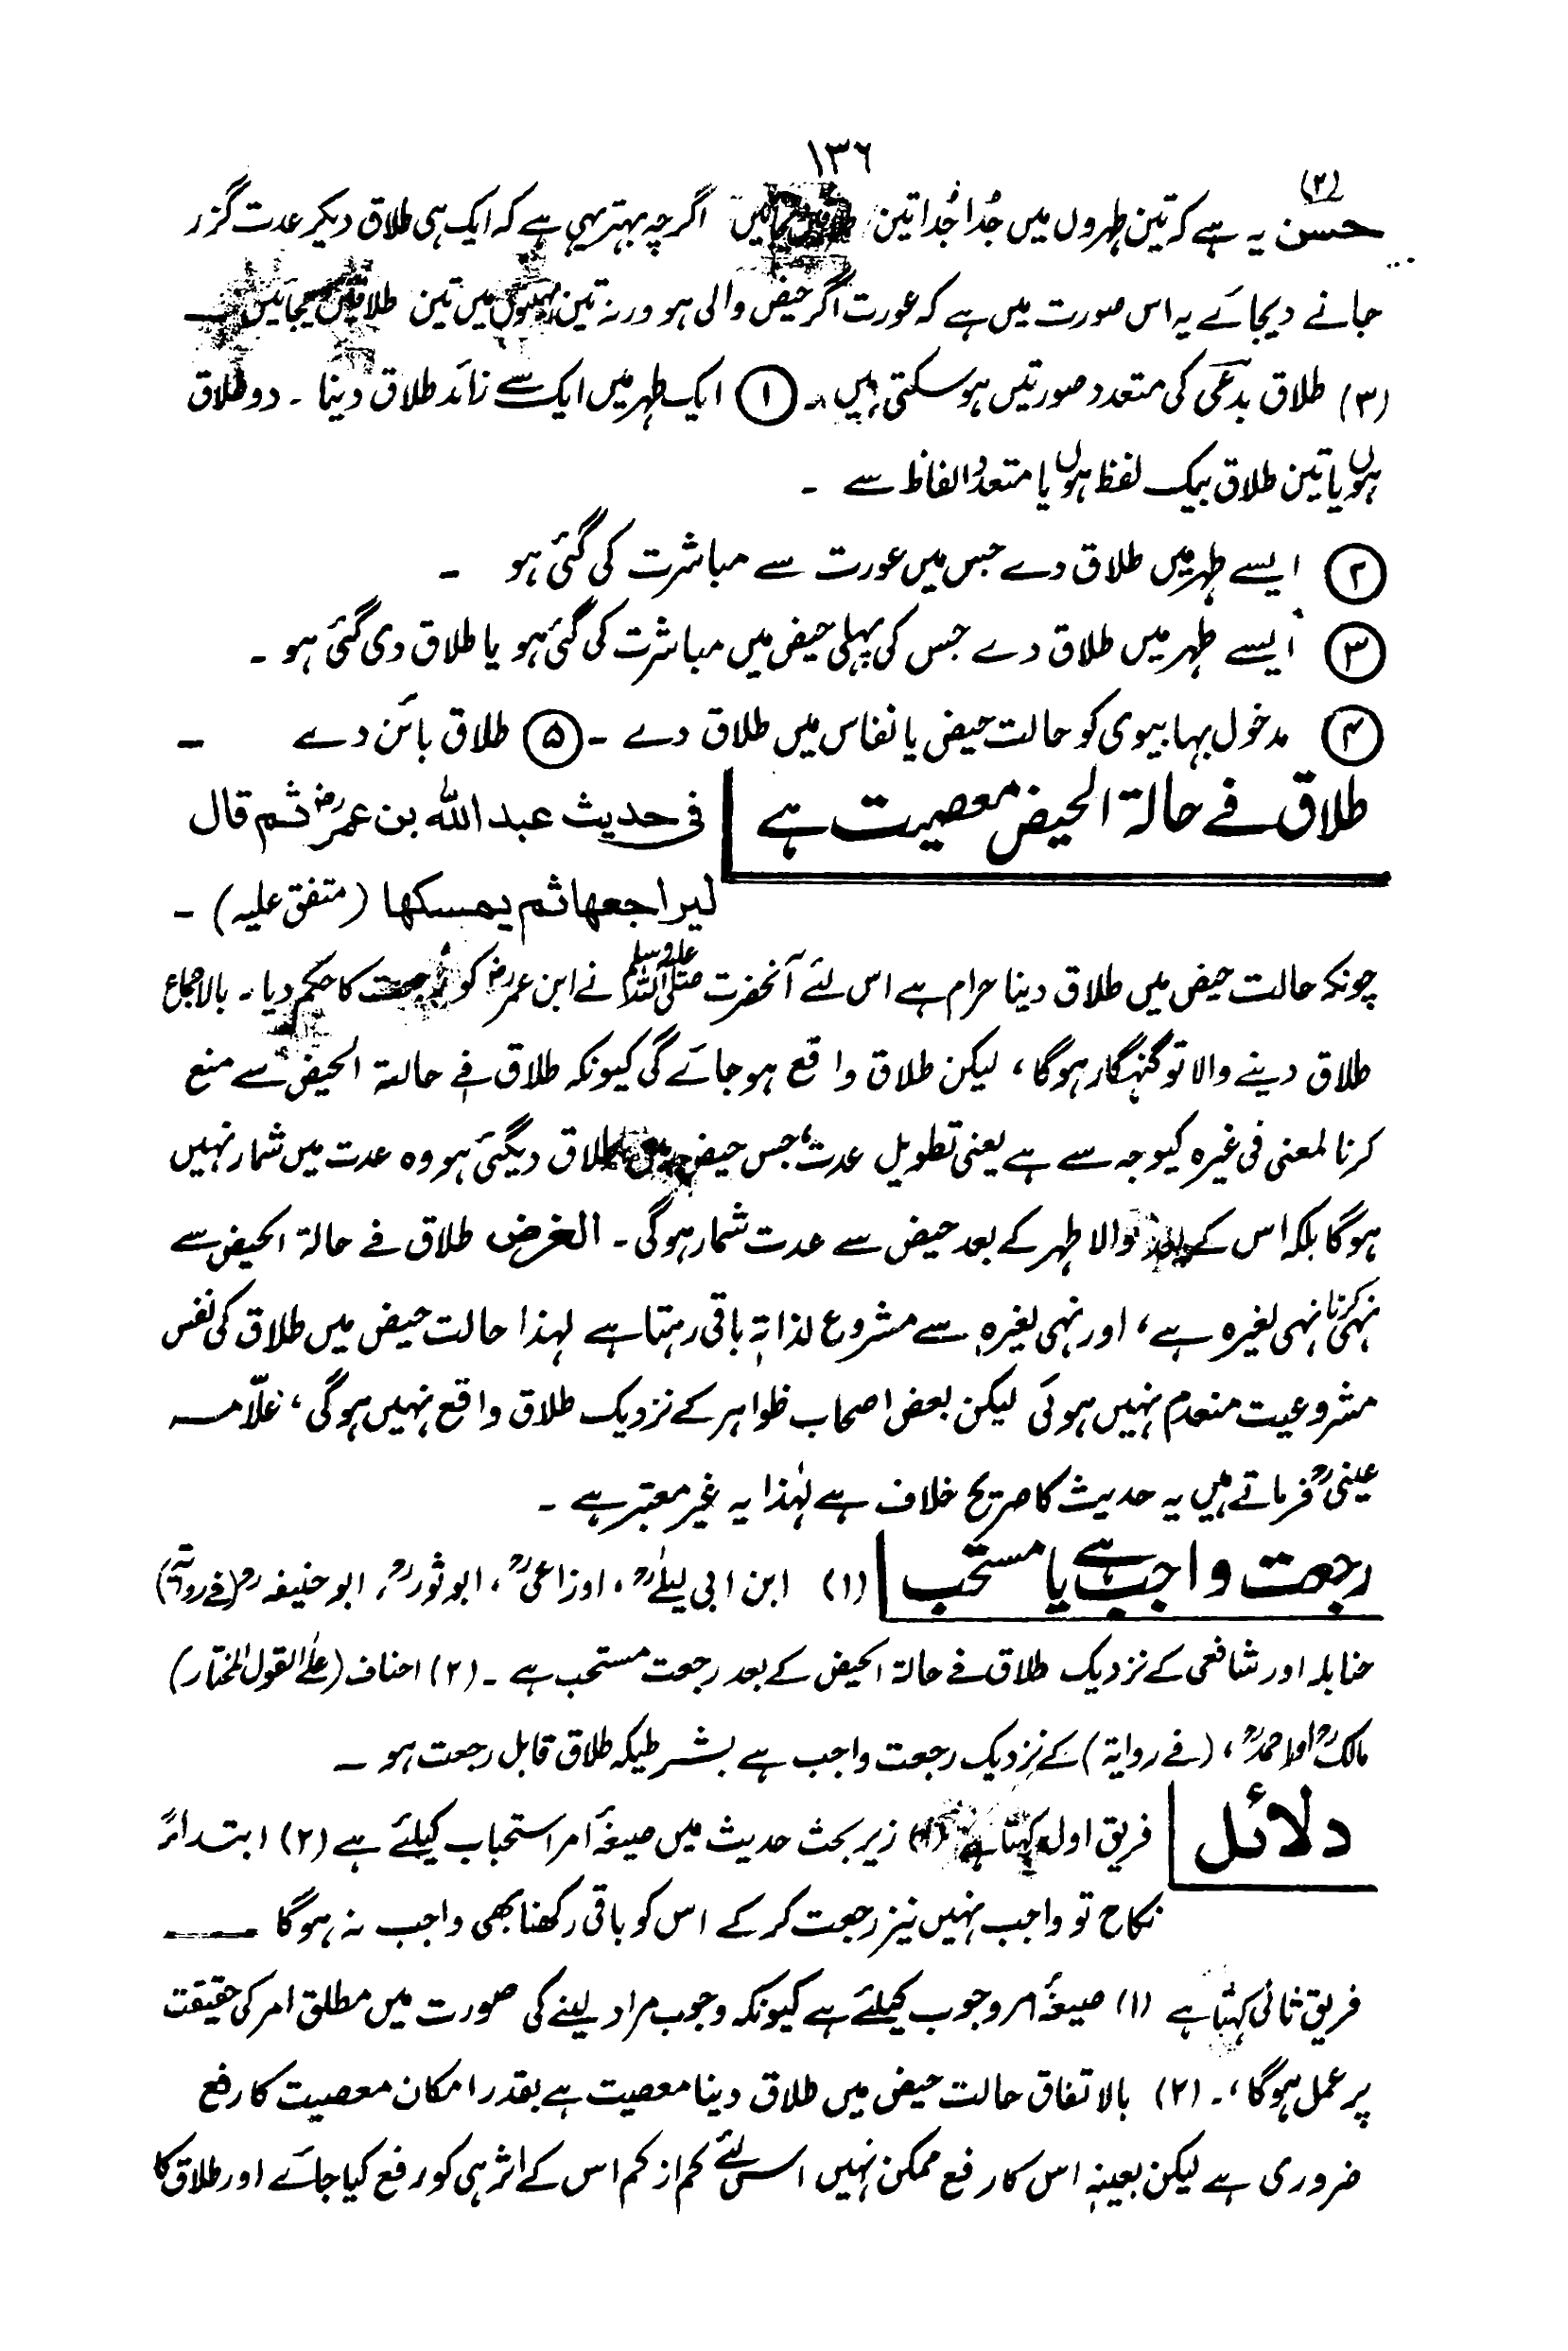 ۱۳۶
(۲)
حسن یہ ہے کہ تین طہروں میں جُدا جُدا تین اگرچہ بہتر یہی ہے کہ ایک ہی طلاق دیکر عدت گزر
جانے دیجائے یہ اس صورت میں ہے کہ عورت اگر حیض والی ہو ورنہ تین مہینوں میں تین طلاقیں دیجائیں ــ
(۳) طلاق بدعی کی متعدد صورتیں ہو سکتی ہیں ۔ ① ایک طہر میں ایک سے زائد طلاق دینا ۔ دو طلاق
ہوں یا تین طلاق بیک لفظ ہوں یا متعدد الفاظ سے ۔
② ایسے طہر میں طلاق دے جس میں عورت سے مباشرت کی گئی ہو ۔
③ ایسے طہر میں طلاق دے جس کی پہلی حیض میں مباشرت کی گئی ہو یا طلاق دی گئی ہو ۔
④ مدخول بہا بیوی کو حالت حیض یا نفاس میں طلاق دے ۔ ⑤ طلاق بائن دے ۔
طلاق فے حالۃ الحیض معصیت ہے فی حدیث عبد اللہ بن عمرؓ ثم قال
لیراجعھا ثم یمسکھا (متفق علیہ) ۔
چونکہ حالت حیض میں طلاق دینا حرام ہے اس لئے آنحضرت صلی اللہ علیہ وسلم نے ابن عمرؓ کو رجعت کا حکم دیا ۔ بالاجماع
طلاق دینے والا تو گنہگار ہوگا ، لیکن طلاق واقع ہو جائے گی کیونکہ طلاق فے حالۃ الحیض سے منع
کرنا لمعنی فی غیرہ کیوجہ سے ہے یعنی تطویل عدت ، جس حیض میں طلاق دیگئی ہو وہ عدت میں شمار نہیں
ہوگا بلکہ اس کے بعد والا طہر کے بعد حیض سے عدت شمار ہوگی ۔ الغرض طلاق فے حالۃ الحیض سے
نہی کرنا نہی لغیرہ ہے ، اور نہی لغیرہ سے مشروع لذاتہ باقی رہتا ہے لہذا حالت حیض میں طلاق کی نفس
مشروعیت منعدم نہیں ہوئی لیکن بعض اصحاب ظواہر کے نزدیک طلاق واقع نہیں ہوگی ، علّامہ
عینیؒ فرماتے ہیں یہ حدیث کا صریح خلاف ہے لہٰذا یہ غیر معتبر ہے ۔
رجعت واجب ہے یا مستحب (۱) ابن ابی لیلےٰؒ ، اوزاعیؒ ، ابو ثورؒ ، ابو حنیفہؒ (فے روایۃ)
حنابلہ اور شافعی کے نزدیک طلاق فے حالۃ الحیض کے بعد رجعت مستحب ہے ۔ (۲) احناف (علےٰ القول المختار)
مالکؒ اور احمدؒ ، (فے روایۃ) کے نزدیک رجعت واجب ہے بشرطیکہ طلاق قابل رجعت ہو ۔
دلائل فریق اول کہتا ہے (۱) زیر بحث حدیث میں صیغۂ امر استحباب کیلئے ہے (۲) ابتداءً
نکاح تو واجب نہیں نیز رجعت کر کے اس کو باقی رکھنا بھی واجب نہ ہوگا ــ
فریق ثانی کہتا ہے (۱) صیغۂ امر وجوب کیلئے ہے کیونکہ وجوب مراد لینے کی صورت میں مطلق امر کی حقیقت
پر عمل ہوگا ،۔ (۲) بالاتفاق حالت حیض میں طلاق دینا معصیت ہے بقدر امکان معصیت کا رفع
ضروری ہے لیکن بعینہٖ اس کا رفع ممکن نہیں اس لئے کم از کم اس کے اثر ہی کو رفع کیا جائے اور طلاق کا